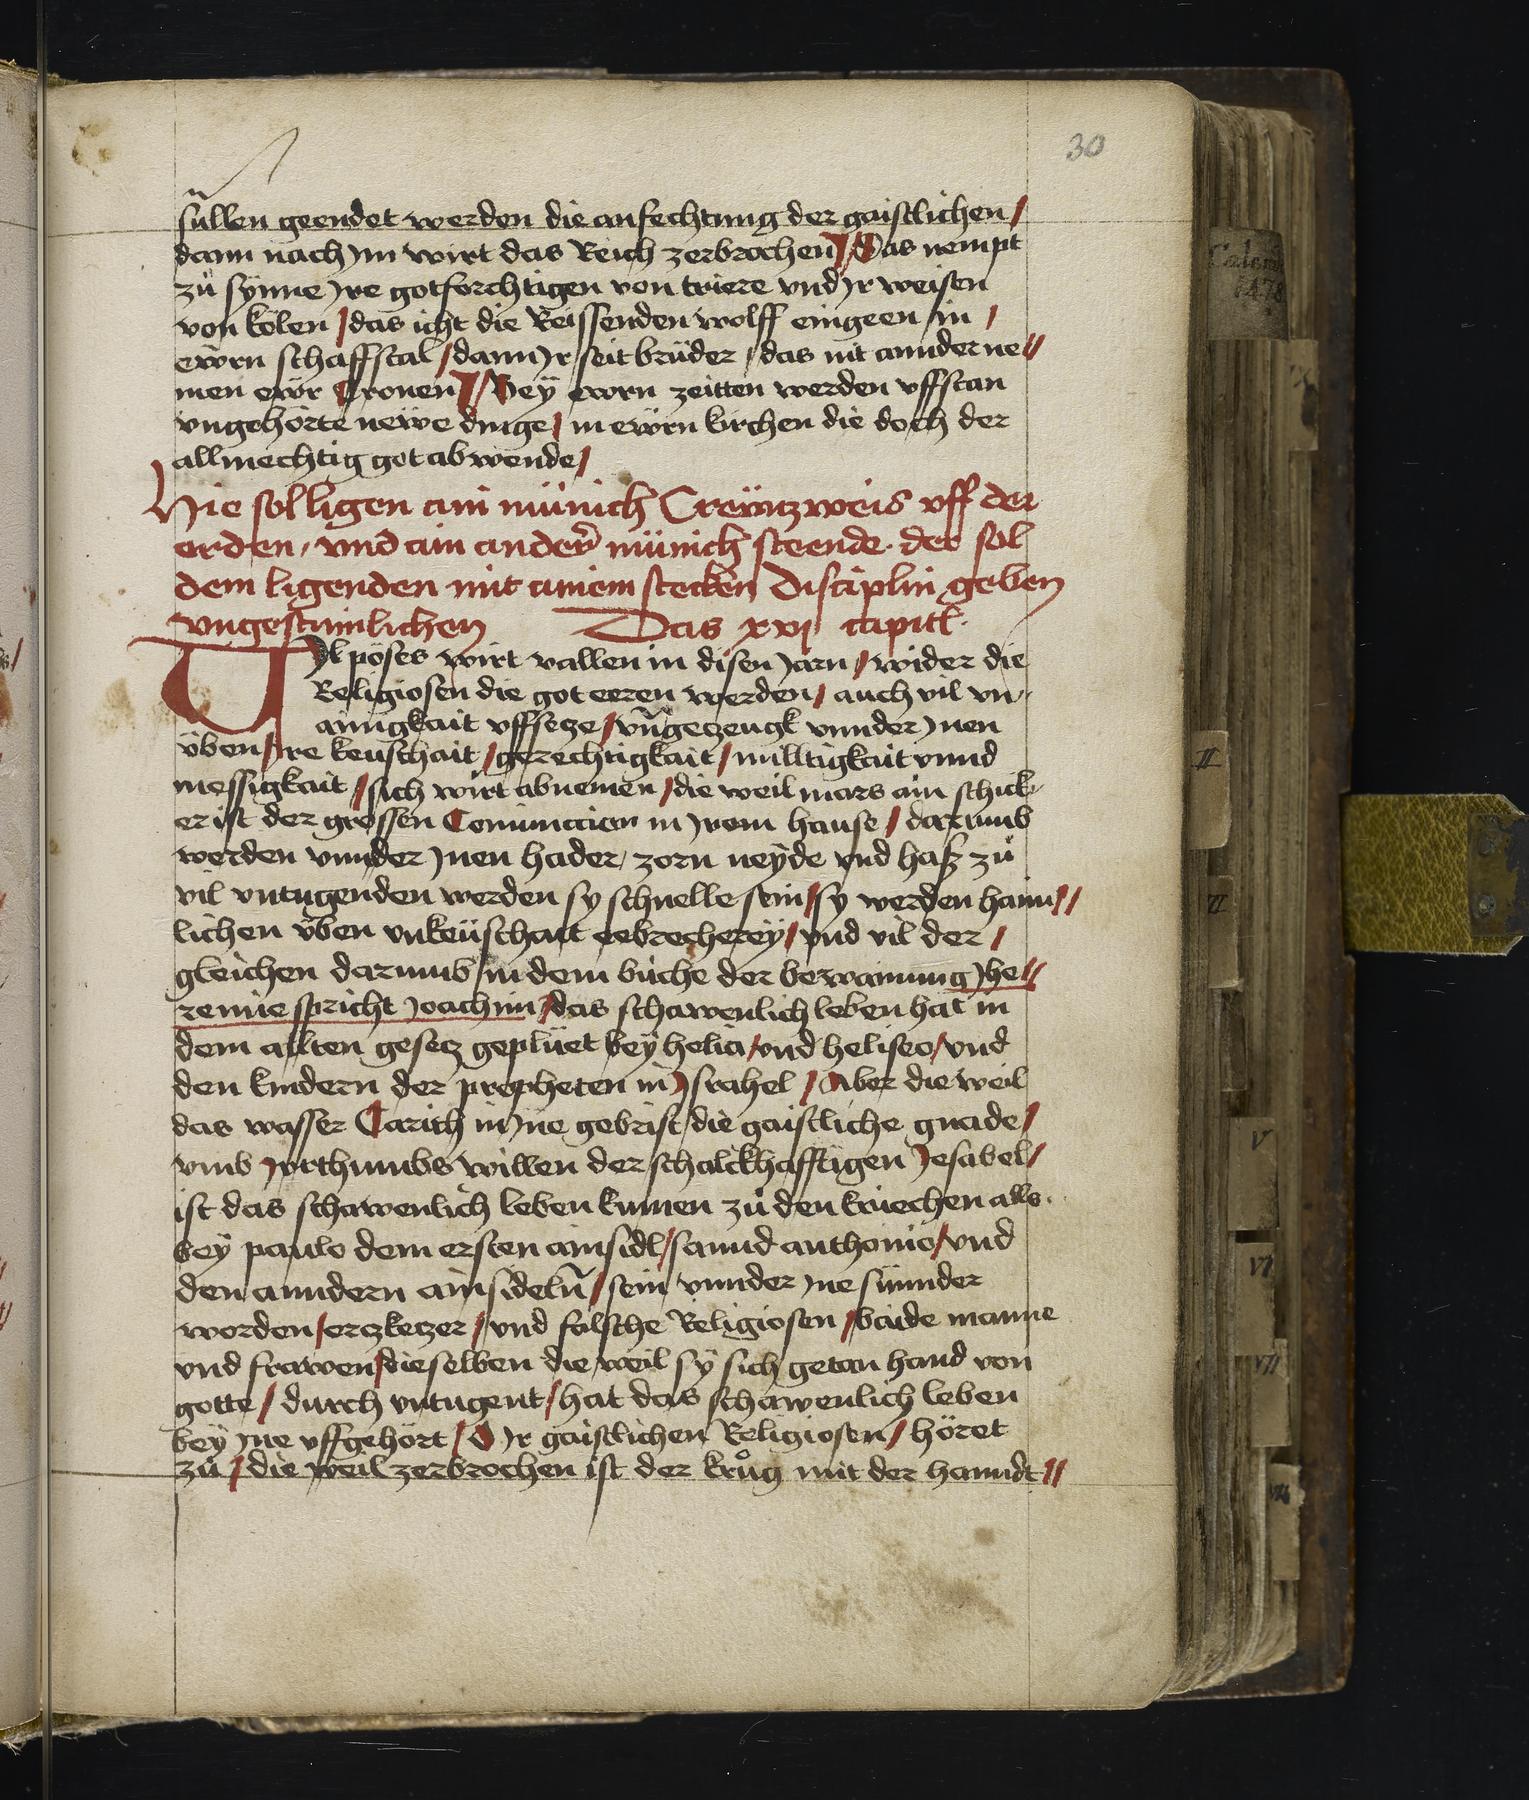 30
süllen geendet werden die anfechtung der gaistlichen /
dann nach jm wirt das Reich zerbrochen / Das nempt
zů synne jre gotforchtigen von triere vnd jr weisen
von kölen / das icht die Reissenden wolff eingeen in /
ewrn schaffstal / dann jr seit brüder / das nit annder ne //
men ewr Cronen / Bey ewrn zeitten werden vffstan
vngehörte newe dinge / in ewrn kirchen die doch der
allmechtig got abwende /
Hie sol ligen ain münich Creützweis vff der
erden / vnd ain ander münich steende . der sol
dem ligenden mit ainem stecken Disciplin geben
vngestimlichen Das xxvj capitl .
Vil pöses wirt vallen in disen jarn / wider die
Religiosen die got eeren werden / auch vil vn-
ainigkait vffsecze / vñ geczengk vnnder jnen
üben / jre keuschait / gerechtigkait / milltigkait vnnd
messigkait / sich wirt abnemen / die weil mars ain schick-
er ist der grossen Coniunccion in jrom hause / darumb
werden vnnder jnen hader / zorn neyde vnd hasz zů
vil vntugenden werden sy schnelle sein / sy werden haim //
lichen üben vnkeüschait eebrecherey / vnd vil der /
gleichen darumb in dem büche der bewainung jhe //
remie spricht joachim / das schawenlich leben hat in
dem allten gesecz geplüet bey helia / vnd heliseo / vnd
den kindern der propheten in jsrahel / Aber die weil
das wasser Carith in jne gebrist / die gaistliche gnade /
vmb jrrthumbs willen der schalckhafftigen jesabel /
ist das schawenlich leben kumen zů den kriechen alls .
bey paulo dem ersten ainsidl / sannd anthonio / vnd
den anndern ainsideln / sein vnnder jne sünnder
worden / erczkeczer / vnd falsche Religiosen / baide manne
vnd frawen / dieselben die weil sy sich getan hand von
gotte / durch vntugent / hat das schawenlich leben
bey jne vffgehört / O jr gaistlichen Religiosen / höret
zů / die weil zerbrochen ist der krůg mit der hanndt //
II
V
VI
VII